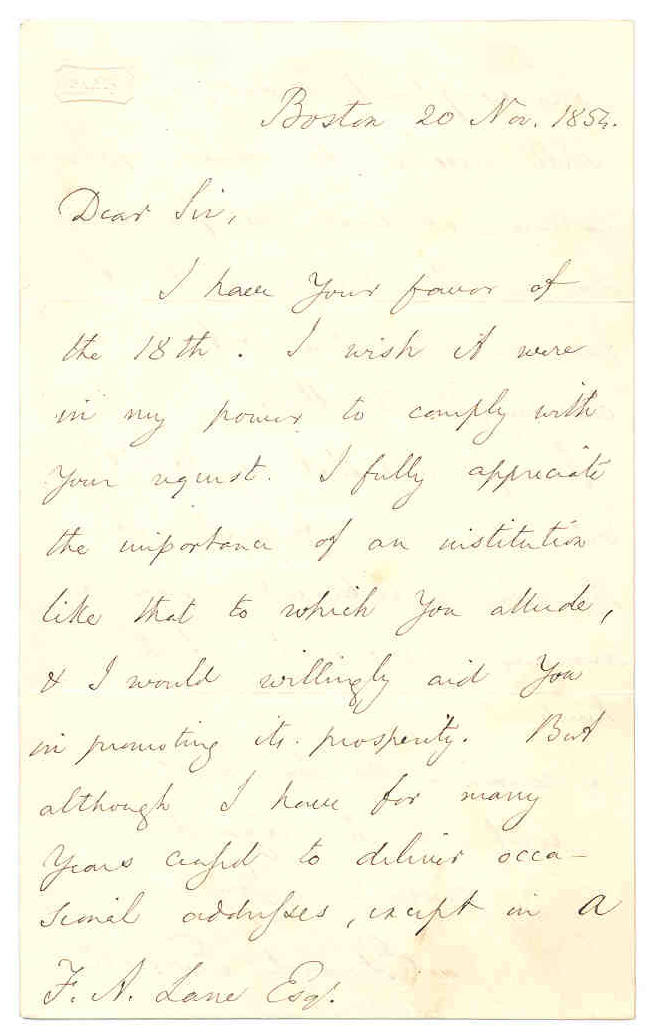 Boston 20 Nov. 1854.
Dear Sir,
I have your favor of
the 18th. I wish it were
in my power to comply with
your request. I fully appreciate
the importance of an institution
like that to which you allude,
& I would willingly aid you
in promoting its prosperity. But
although I have for many
years ceased to deliver occa-
sional addresses, except in a
F. A. Lane Esq.